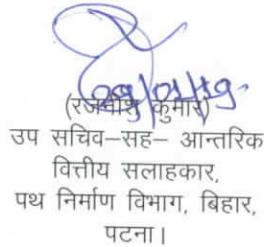 09/01/19
(रजनीश कुमार)
उप सचिव–सह– आन्तरिक
वित्तीय सलाहकार,
पथ निर्माण विभाग, बिहार,
पटना।